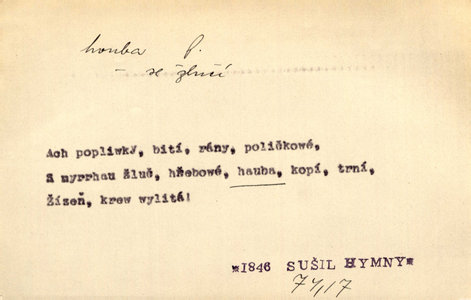 houba P.
- se žlučí
Ach popliwky, bití, rány, poličkowé,
S myrrhau žluč, hřebowé, hauba, kopí, trní,
Žízeň, krew wylitá!
*1846 SUŠIL HYMNY*
71/17